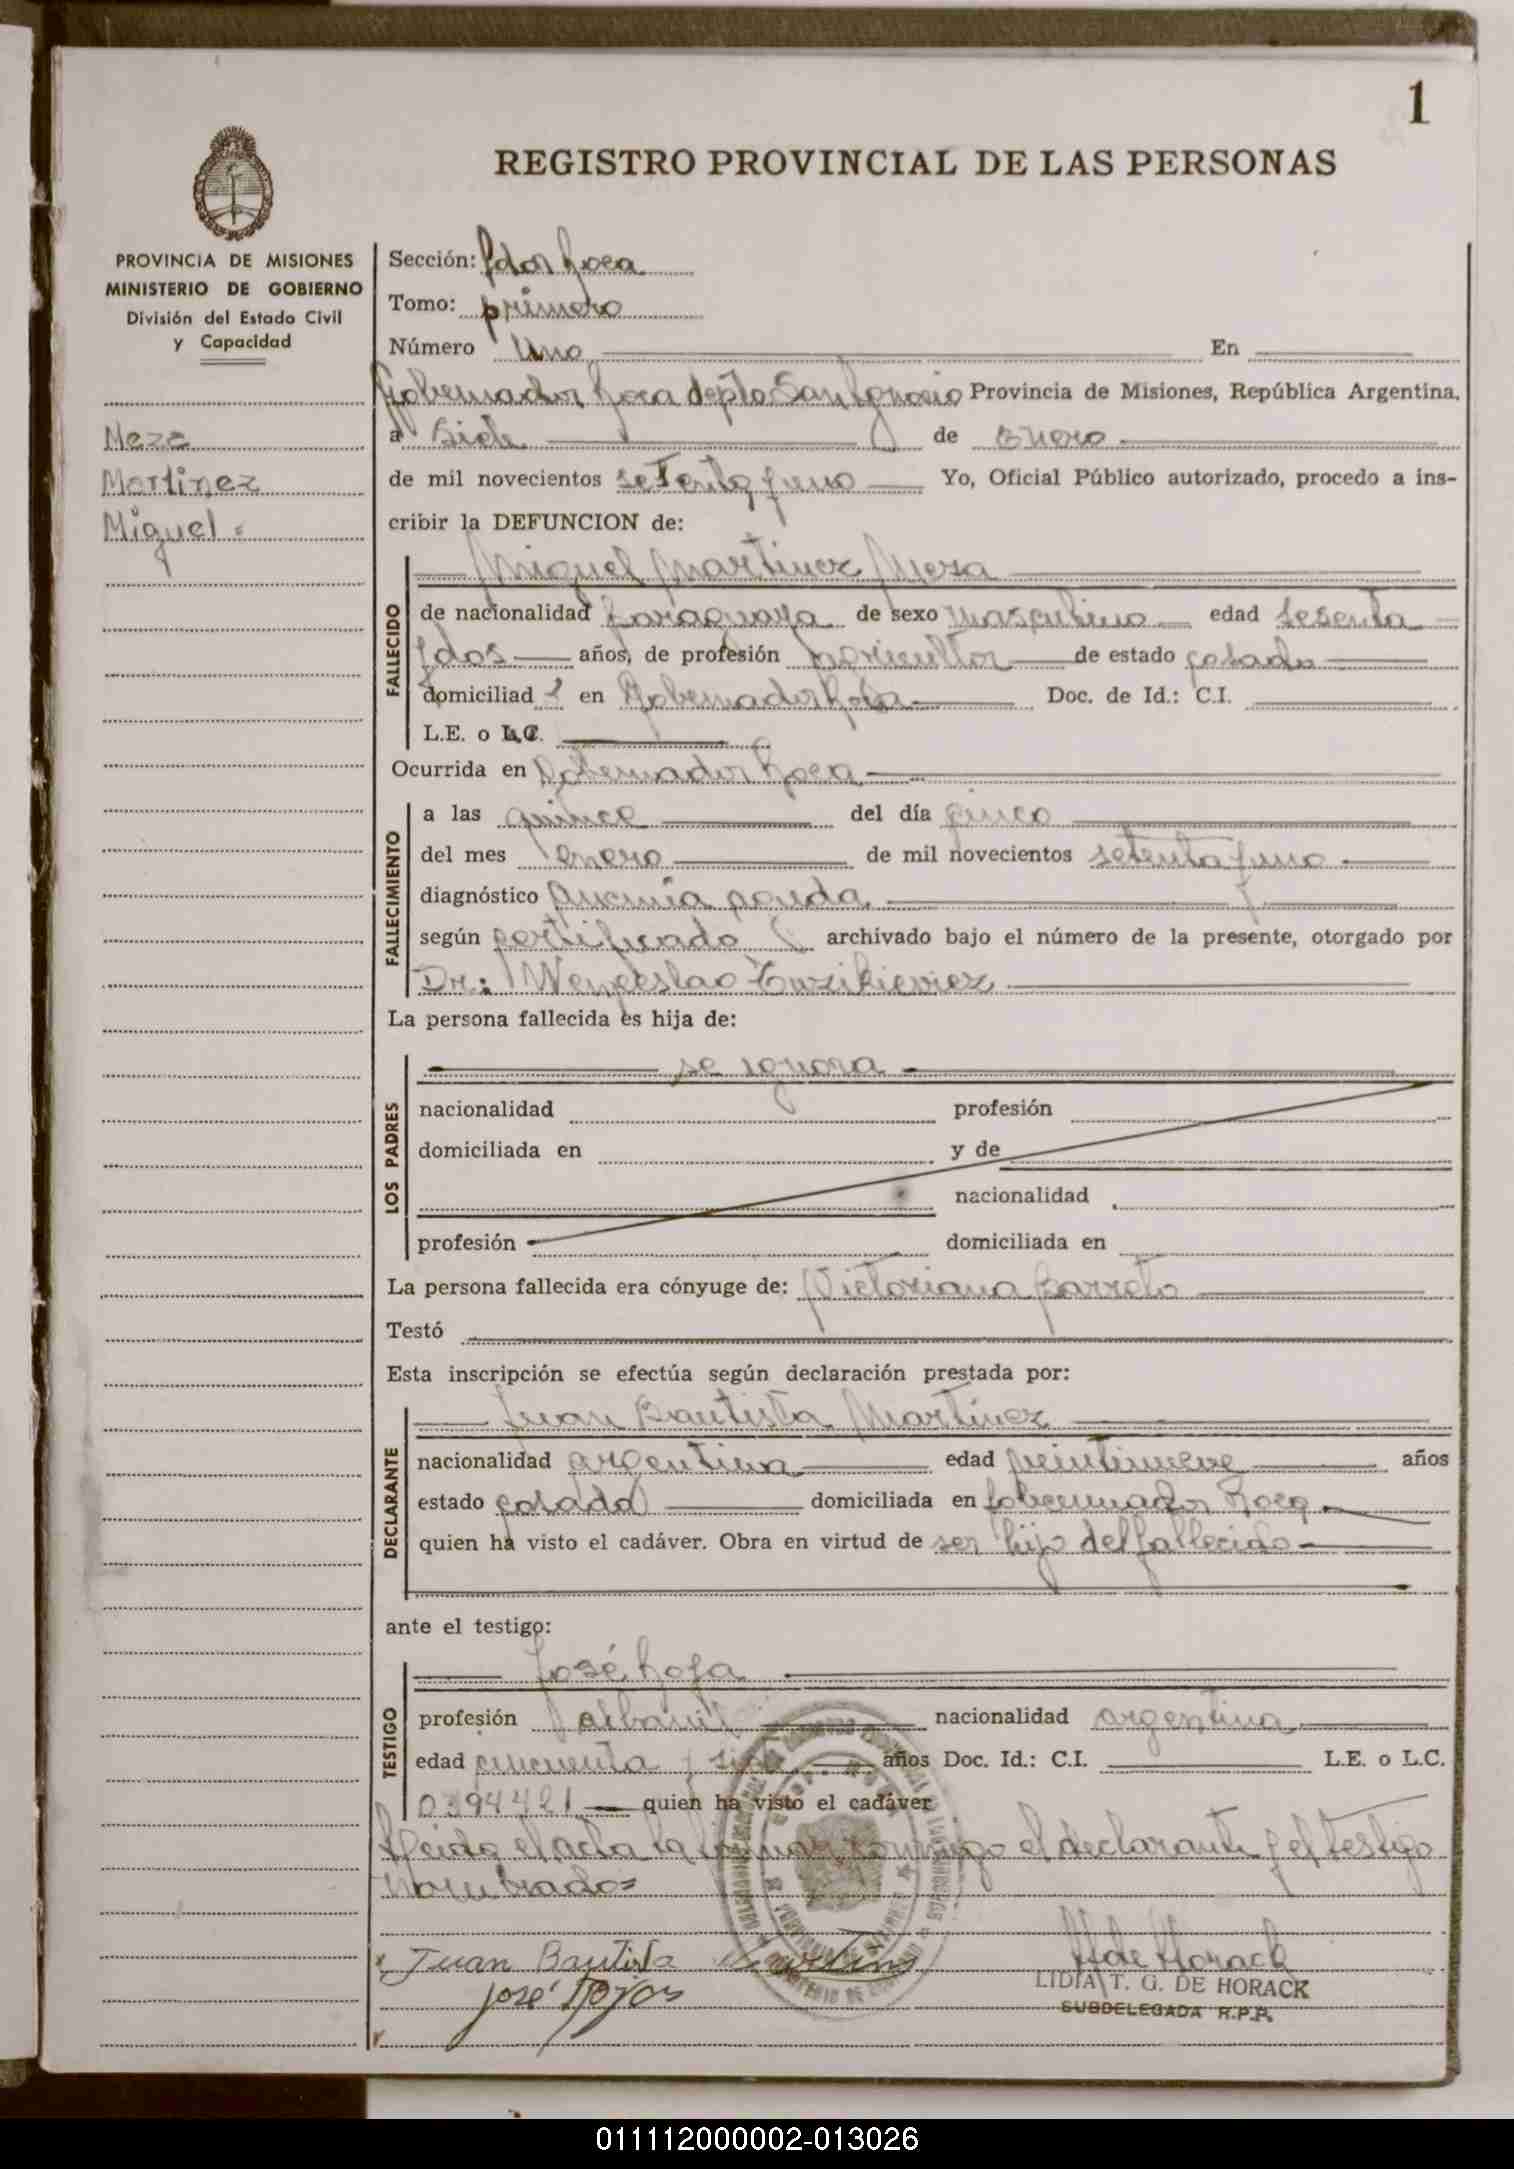 1
REGISTRO PROVINCIAL DE LAS PERSONAS
PROVINCIA DE MISIONES
MINISTERIO DE GOBIERNO
División del Estado Civil
y Capacidad
Meza
Martinez
Miguel.
Sección: Gdor Roca
Tomo: primero
Número Uno En
Gobernador Roca depto San Ignacio Provincia de Misiones, República Argentina,
a Siete de enero
de mil novecientos setenta y uno Yo, Oficial Público autorizado, procedo a ins-
cribir la DEFUNCION de:
Miguel Martinez Meza
FALLECIDO
de nacionalidad Paraguaya de sexo masculino edad sesenta
y dos años, de profesión agricultor de estado casado
domiciliad en Gobernador Roca Doc. de Id.: C.I.
L.E. o L.C.
Ocurrida en Gobernador Roca
FALLECIMIENTO
a las quince del día cinco
del mes enero de mil novecientos setenta y uno
diagnóstico Anemia aguda
según certificado archivado bajo el número de la presente, otorgado por
Dr: Wenceslao
La persona fallecida es hija de:
LOS PADRES
se ignora
nacionalidad profesión
domiciliada en y de
nacionalidad
profesión domiciliada en
La persona fallecida era cónyuge de: Victoriana Barreto
Testó
Esta inscripción se efectúa según declaración prestada por:
DECLARANTE
Juan Bautista Martinez
nacionalidad argentina edad veintinueve años
estado casado domiciliada en Gobernador Roca
quien ha visto el cadáver. Obra en virtud de ser hijo del fallecido
ante el testigo:
TESTIGO
José Roja
profesión albanil nacionalidad argentina
edad cincuenta y años Doc. Id.: C.I. L.E. o L.C.
0394421 quien ha visto el cadáver
Leida el acta la firman conmigo el declarante y el testigo
nombrados
Juan Bautista Martins
José Rojas
H de Horack
LIDIA T. G. DE HORACK
SUBDELEGADA R.P.P.
011112000002-013026